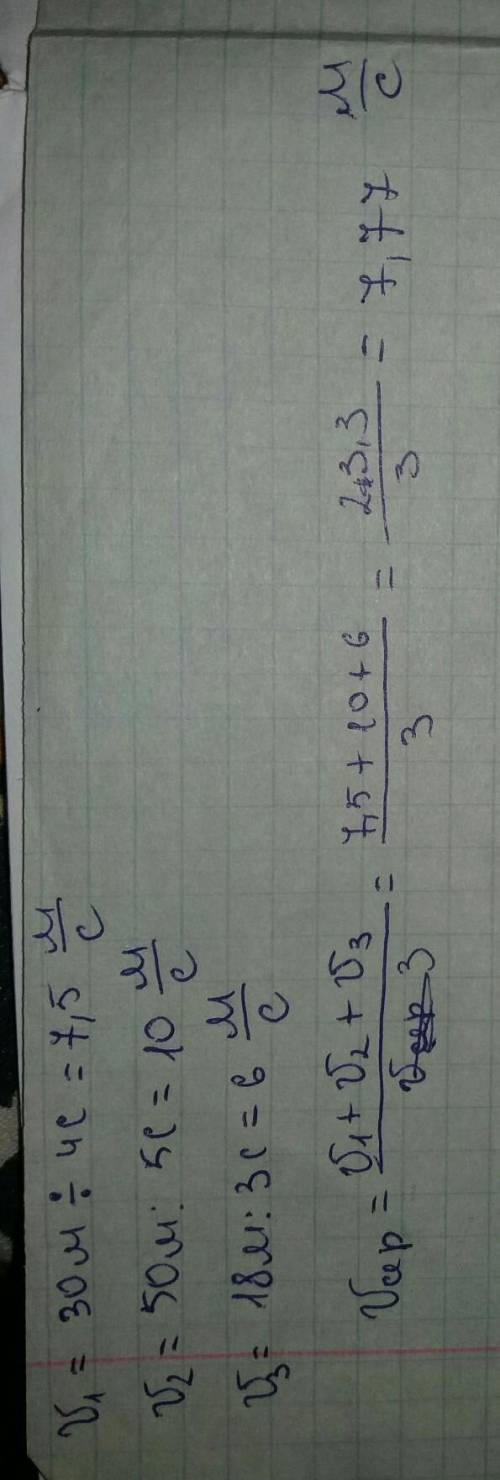 v₁ = 30м ÷ 4с = 7,5 м/с
v₂ = 50м : 5с = 10 м/с
v₃ = 18м : 3с = 6 м/с
vср = (v₁ + v₂ + v₃)/3 = (7,5 + 10 + 6)/3 = 23,3/3 = 7,77 м/с